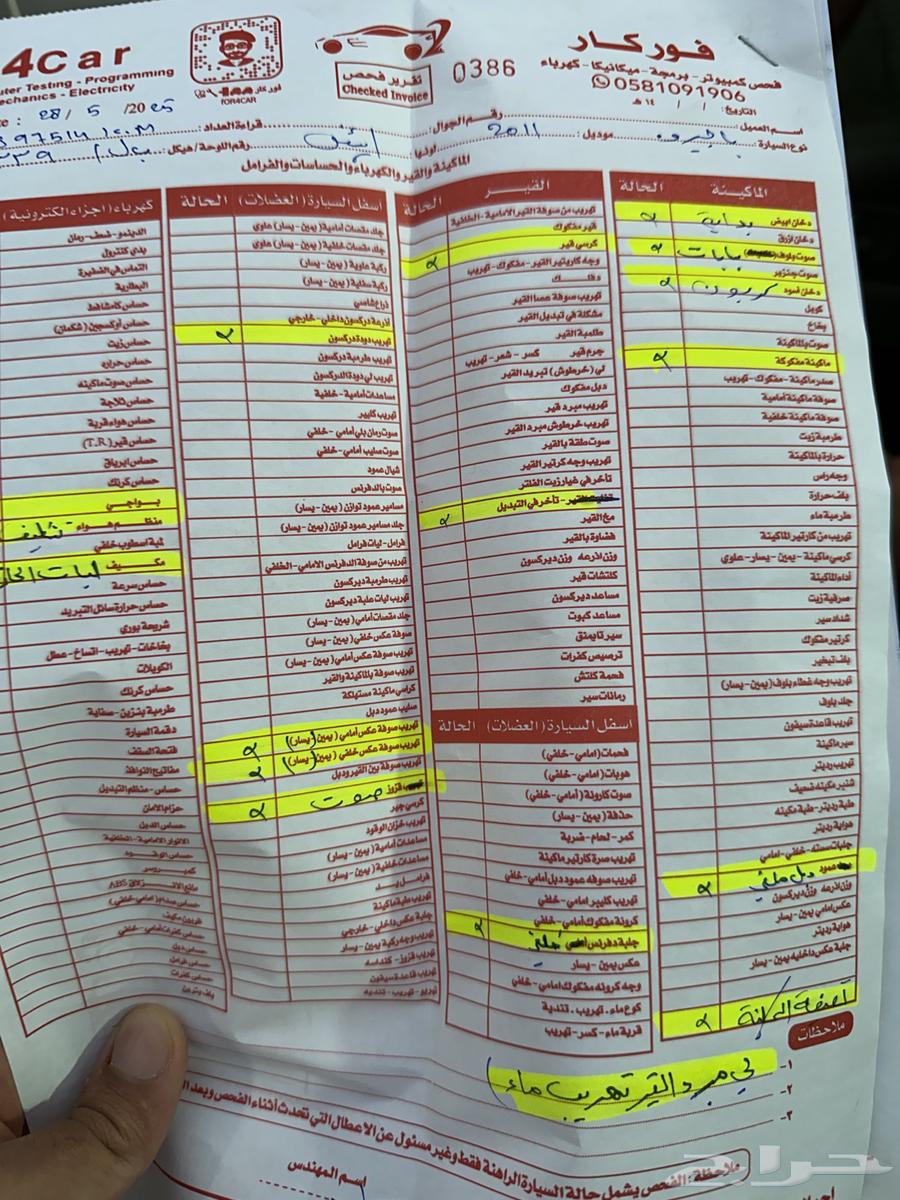 4Car
Computer Testing - Programming
Mechanics - Electricity
FOR4CAR
فور كار
تقرير فحص
Checked Invoice
0386
فور كار
فحص كمبيوتر - برمجة - ميكانيكا - كهرباء
0581091906
التاريخ: / / ١٤هـ
28 / 5 / 2025
اسم العميل:
رقم الجوال:
قراءة العداد:
نوع السيارة
باجيرو
موديل:
2011
لونها
ابيض
رقم اللوحة / هيكل:
الماكينة والقير والكهرباء والحساسات والفرامل
الماكينة
الحالة
دخان ابيض بداية
دخان ازرق
صوت بلوف بابات
صوت جنزير
دخان اسود كربون
كويل
بخاخ
صوت بالماكينة
ماكينة مفكوكة
صدر ماكينة - مفكوك - تهريب
صوفة ماكينة أمامية
صوفة ماكينة خلفية
طرمبة زيت
حرارة بالماكينة
وجه راس
بلف حرارة
طرمبة ماء
تهريب من كارتير الماكينة
كرسي ماكينة - يمين - يسار - علوي
أداء الماكينة
صرفية زيت
شداد سير
كرتير مفكوك
بلف تبخير
تهريب وجه غطاء بلوف (يمين - يسار)
جلد بلوف
تهريب قاعدة سيفون
سير ماكينة
تهريب رديتر
شنبر مكينه ضعيف
طبة رديتر - طبة مكينه
هواية رديتر
جلبات مسته - خلفي - امامي
عمود دبل خلفي
وزن اذرعه وزن ديركسون
عكس امامي يمين - يسار
هواية رديتر
جلبة عكس داخليه يمين - يسار
القير
الحالة
تهريب من صوفة القير الامامية - الخلفية
قير مفكوك
كرسي قير
وجه كارتير القير - مفكوك - تهريب
تهريب صوفة عصا القير
مشكلة في تبديل القير
طلمبة القير
جرم قير كسر - شعر - تهريب
لي (خرطوش) تبريد القير
دبل مفكوك
تهريب مبرد قير
تهريب خرطوش مبرد القير
صوت طقة بالقير
تهريب وجه كرتير القير
تأخر في غيار زيت الفلتر
القير - تأخر في التبديل
مخ القير
قضاوة بالقير
وزن اذرعه وزن ديركسون
كلتشات قير
مساعد ديركسون
مساعد كبوت
سير تايمنق
ترصيص كفرات
فحمة كلتش
رمانات سير
اسفل السيارة (العضلات)
الحالة
فحمات (امامي - خلفي)
هوبات (امامي - خلفي)
صوت كارونة (أمامي - خلفي)
حذفة (يمين - يسار)
كمر - لحام - ضربة
تهريب صرة كارتير ماكينة
تهريب صوفه عمود دبل أمامي - خلفي
تهريب كليبر امامي - خلفي
كرونة مفكوك أمامي - خلفي
جلبة دفرنس خلفي
عكس يمين - يسار
وجه كرونه مفكوك امامي - خلفي
كوع ماء . تهريب . تندية
قربة ماء - كسر - تهريب
اسفل السيارة (العضلات)
الحالة
جلد مقصات أمامية (يمين - يسار) علوي
جلد مقصات خلفية (يمين - يسار) علوي
ركبة علوية (يمين - يسار)
ركبة سفلية (يمين - يسار)
ذراع شاصي
اذرعة دركسون داخلي - خارجي
تهريب دودة دركسون
تهريب طرمبة دركسون
تهريب لي دودة الدركسون
مساعدات أمامية - خلفية
تهريب كليبر
صوت رمان بلي أمامي - خلفي
صوت صليب أمامي - خلفي
شيال عمود
صوت بالدفرنس
مسامير عمود توازن (يمين - يسار)
جلد مسامير عمود توازن (يمين - يسار)
فرامل - ليات فرامل
تهريب من صوفة الدفرنس الامامي - الخلفي
تهريب طرمبة ديركسون
تهريب ليات علبة ديركسون
جلد مقصات أمامي (يمين - يسار)
صوفة عكس خلفي (يمين - يسار)
تهريب صوفة عكس أمامي (يمين - يسار)
تهريب صوفة بالماكينة والقير
كراسي ماكينة مستهلكة
صليب عمود دبل
تهريب صوفة عكس أمامي (يمين - يسار)
تهريب صوفة عكس خلفي (يمين - يسار)
تهريب صوفة بين القير ودبل
قزوز صوت
كرسي جير
تهريب خزان الوقود
مساعدات أمامية (يمين - يسار)
مساعدات خلفية (يمين - يسار)
تهريب طبة ماكينة
جلبة عكس داخلي - خارجي
تهريب وجه ركبة يمين - يسار
تهريب قاعدة سيفون
كهرباء (اجزاء الكترونية)
الدينمو - ضعف - رمان
بدي كنترول
التماس في الضفيرة
البطارية
حساس كامشافط
حساس أوكسجين (شكمان)
حساس زيت
حساس حراره
حساس صوت ماكينه
حساس ثلاجة
حساس هواء قربة
حساس قير (T.R)
حساس ايرباق
حساس كرنك
بواجي
منظم هواء تنظيف
لمبة اسطوب خلفي
مكيف ليات
حساس سرعة
حساس حرارة سائل التبريد
شريحة بوري
بخاخات - تهريب - اتساخ - عطل
الكويلات
حساس كرنك
طرمبة بنزين - صفاية
دقمة السيارة
فتحة السقف
مفاتيح النوافذ
حساس - منظم التبديل
حزام الامان
حساس الدبل
الانوار الامامية - الخلفية
مانع الانزلاق ABS
حساس صدام (امامي - خلفي)
حساس كفرات أمامي - خلفي
حساس دبل
حساس فرامل
حساس كفرات
ملاحظات
١- لي مبرد القير تهريب ماء
٢-
٣-
ملاحظة: الفحص يشمل حالة السيارة الراهنة فقط وغير مسئول عن الاعطال التي تحدث أثناء الفحص وبعد
اسم المهندس
حراج